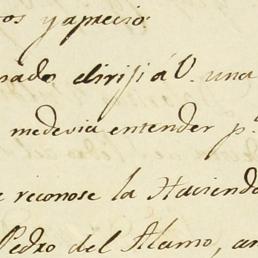 os y aprecio.
sado dirisi á V. una
medevia entender p.r
e reconose la Hacienda
Pedro del Alamo, an